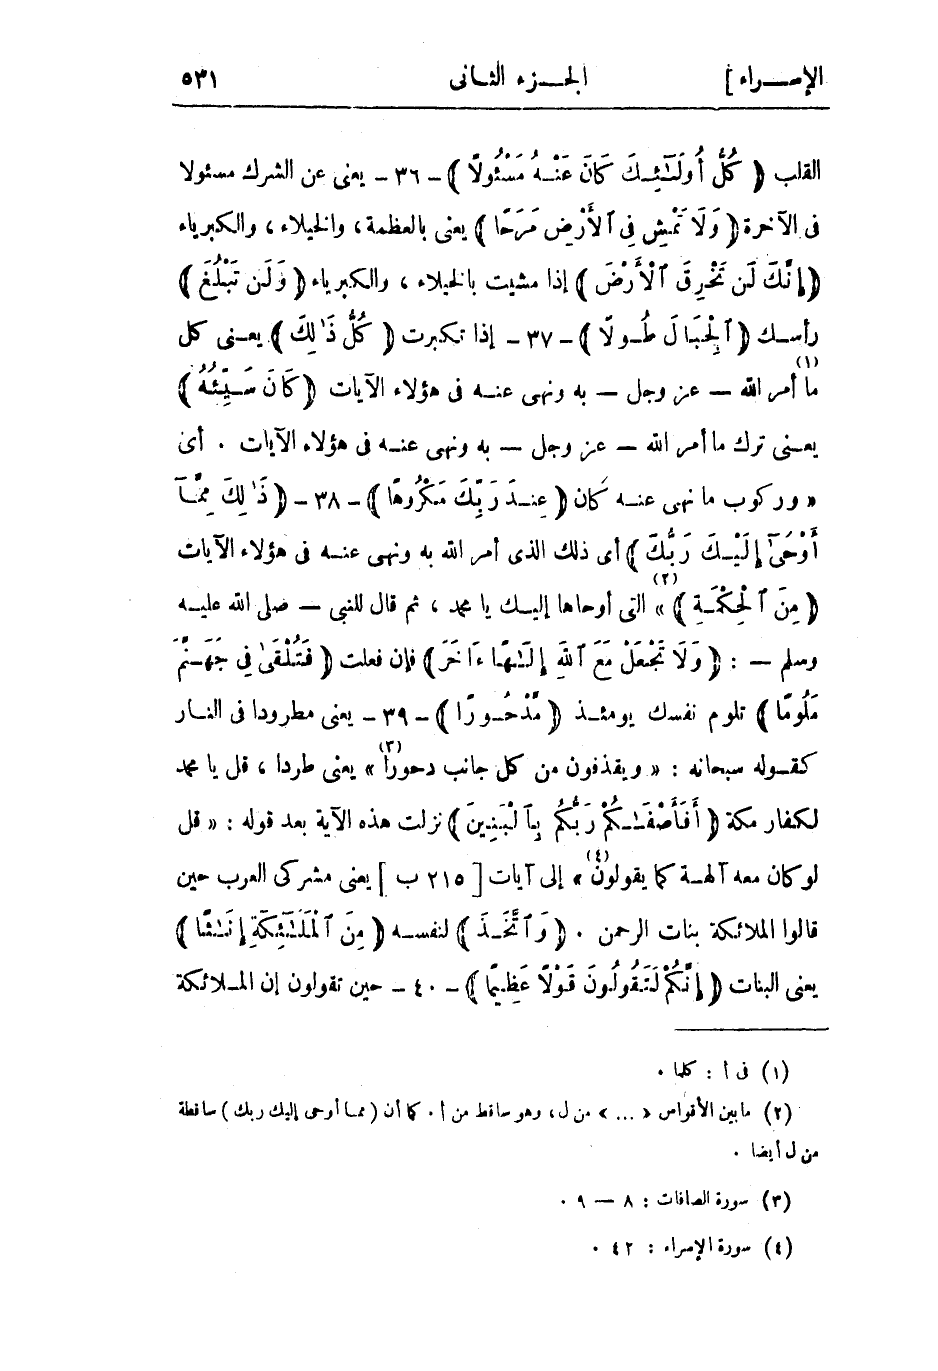 الإسراء] الجزء الثانى ٥٣١
القلب ﴿ كُلُّ أُولَـٰٓئِكَ كَانَ عَنْهُ مَسْئُولًا ﴾ - ٣٦ - يعنى عن الشرك مسئولا
فى الآخرة ﴿ وَلَا تَمْشِ فِى ٱلْأَرْضِ مَرَحًا ﴾ يعنى بالعظمة، والخيلاء، والكبرياء
﴿ إِنَّكَ لَن تَخْرِقَ ٱلْأَرْضَ ﴾ إذا مشيت بالخيلاء ، والكبرياء ﴿ وَلَن تَبْلُغَ ﴾
رأسك ﴿ ٱلْجِبَالَ طُولًا ﴾ - ٣٧ - إذا تكبرت ﴿ كُلُّ ذَٰلِكَ ﴾ يعنى كل
ما(١) أمر الله — عز وجل — به ونهى عنه فى هؤلاء الآيات ﴿ كَانَ سَيِّئُهُۥ ﴾
يعنى ترك ما أمر الله — عز وجل — به ونهى عنه فى هؤلاء الآيات . أى
« وركوب ما نهى عنه كان ﴿ عِندَ رَبِّكَ مَكْرُوهًا ﴾ - ٣٨ - ﴿ ذَٰلِكَ مِمَّآ
أَوْحَىٰٓ إِلَيْكَ رَبُّكَ ﴾ أى ذلك الذى أمر الله به ونهى عنه فى هؤلاء الآيات
﴿ مِنَ ٱلْحِكْمَةِ ﴾ »(٢) التى أوحاها إليك يا محمد ، ثم قال للنبى — صلى الله عليه
وسلم — : ﴿ وَلَا تَجْعَلْ مَعَ ٱللَّهِ إِلَـٰهًا ءَاخَرَ ﴾ فإن فعلت ﴿ فَتُلْقَىٰ فِى جَهَنَّمَ
مَلُومًا ﴾ تلوم نفسك يومئذ ﴿ مَّدْحُورًا ﴾ - ٣٩ - يعنى مطرودا فى النار
كقوله سبحانه : « ويقذفون من كل جانب دحورا(٣) » يعنى طردا ، قل يا محمد
لكفار مكة ﴿ أَفَأَصْفَـٰكُمْ رَبُّكُم بِٱلْبَنِينَ ﴾ نزلت هذه الآية بعد قوله : « قل
لو كان معه آلهة كما يقولون(٤) » إلى آيات [ ٢١٥ ب ] يعنى مشركى العرب حين
قالوا الملائكة بنات الرحمن . ﴿ وَٱتَّخَذَ ﴾ لنفسه ﴿ مِنَ ٱلْمَلَـٰٓئِكَةِ إِنَـٰثًا ﴾
يعنى البنات ﴿ إِنَّكُمْ لَتَقُولُونَ قَوْلًا عَظِيمًا ﴾ - ٤٠ - حين تقولون إن الملائكة
(١) فى أ : كلما .
(٢) ما بين الأقواس « ... » من ل، وهو ساقط من أ . كما أن ( مما أوحى إليك ربك ) ساقطة
من ل أيضا .
(٣) سورة الصافات : ٨ — ٩ .
(٤) سورة الإسراء : ٤٢ .